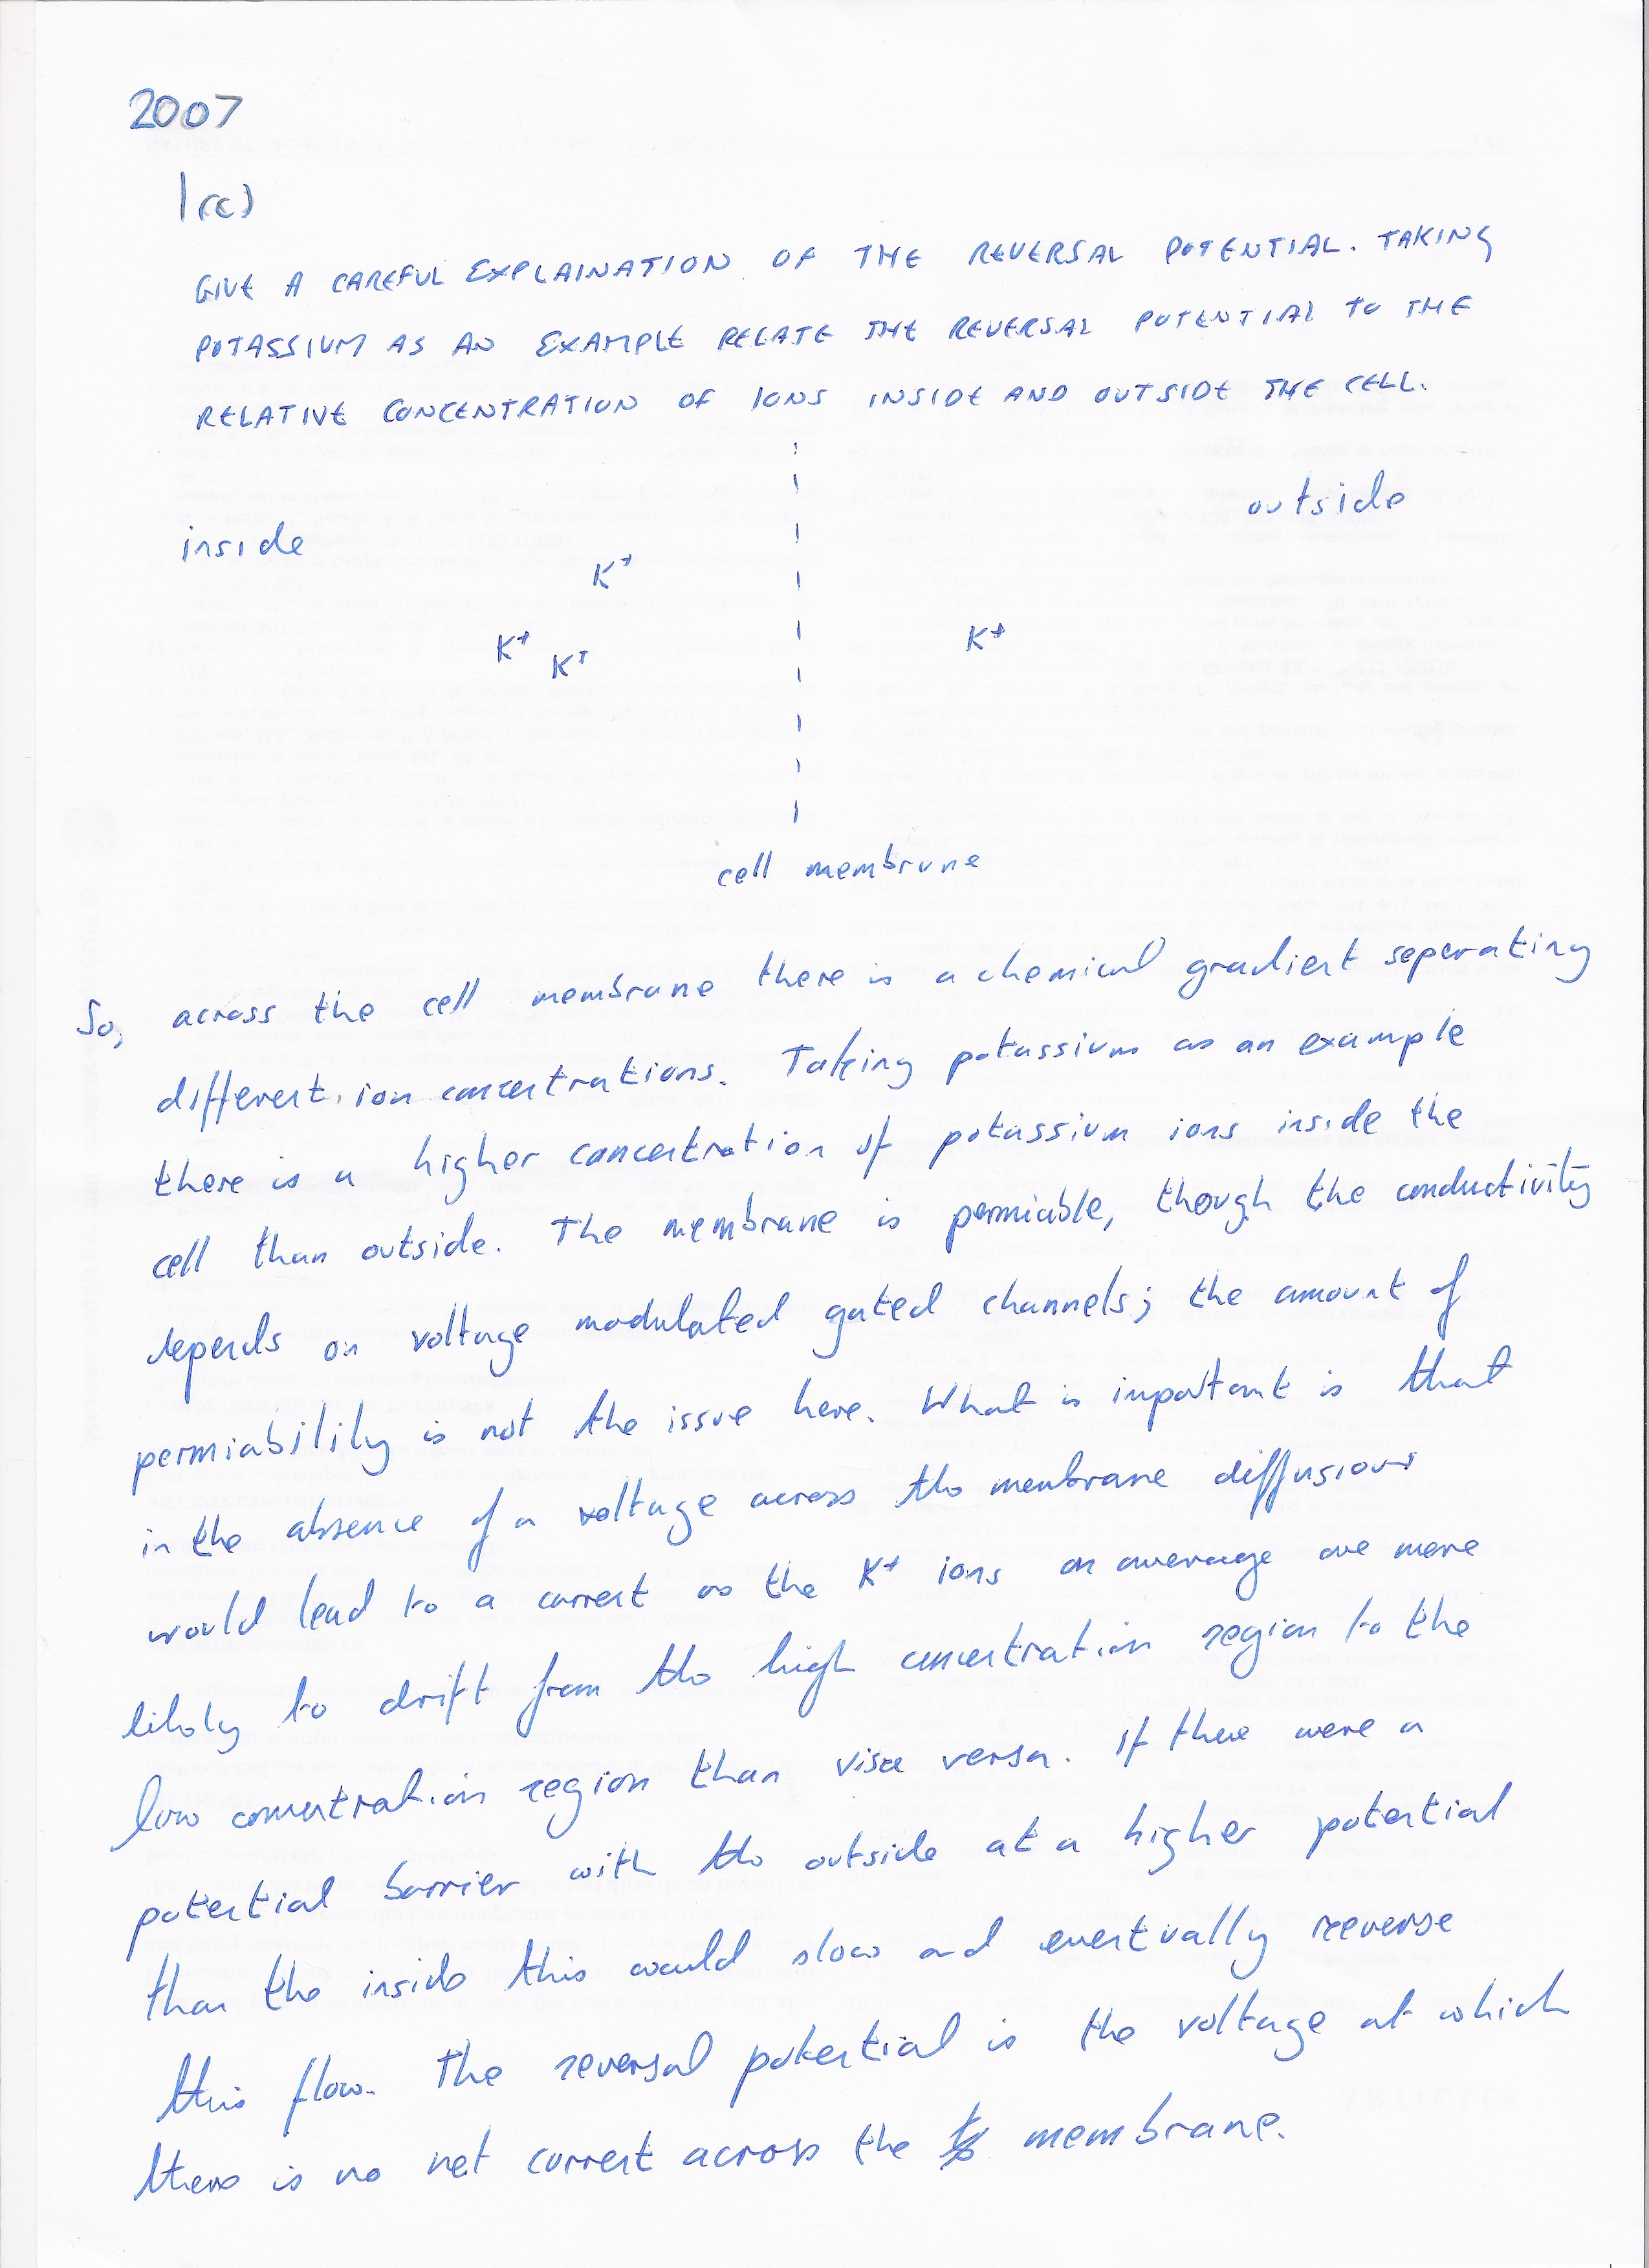 2007
1(c)
GIVE A CAREFUL EXPLAINATION OF THE REVERSAL POTENTIAL. TAKING
POTASSIUM AS AN EXAMPLE RELATE THE REVERSAL POTENTIAL TO THE
RELATIVE CONCENTRATION OF IONS INSIDE AND OUTSIDE THE CELL.
inside
outside
K+
K+
K+
K+
cell membrane
So, across the cell membrane there is a chemical gradient seperating
different ion concentrations. Taking potassium as an example
there is a higher concentration of potassium ions inside the
cell than outside. The membrane is permiable, though the conductivity
depends on voltage modulated gated channels; the amount of
permiability is not the issue here. What is important is that
in the absence of a voltage across the membrane diffusion
would lead to a current as the K+ ions on average are more
likely to drift from the high concentration region to the
low concentration region than visa versa. If there were a
potential barrier with the outside at a higher potential
than the inside this would slow and eventually reverse
this flow. The reversal potential is the voltage at which
there is no net current across the membrane.